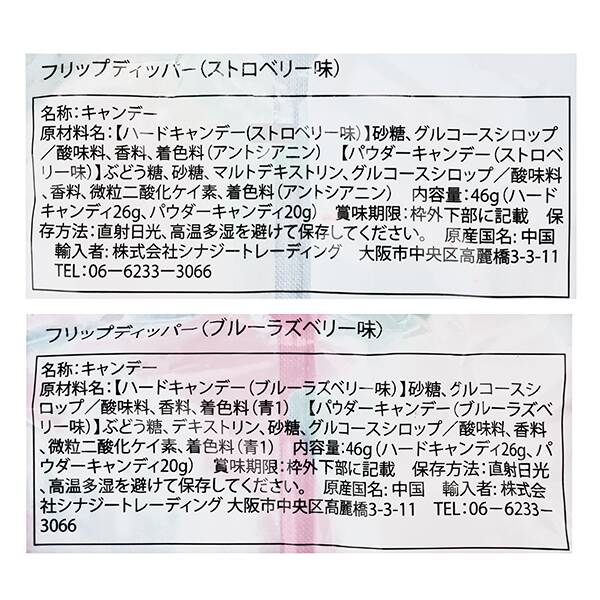 フリップディッパー(ストロベリー味)
名称:キャンデー
原材料名:【ハードキャンデー(ストロベリー味)】砂糖、グルコースシロップ
/酸味料、香料、着色料(アントシアニン) 【パウダーキャンデー(ストロベ
リー味)】ぶどう糖、砂糖、マルトデキストリン、グルコースシロップ/酸味料
、香料、微粒二酸化ケイ素、着色料(アントシアニン) 内容量:46g(ハード
キャンディ26g、パウダーキャンディ20g) 賞味期限:枠外下部に記載 保
存方法:直射日光、高温多湿を避けて保存してください。 原産国名:中国
輸入者:株式会社シナジートレーディング 大阪市中央区高麗橋3-3-11
TEL:06-6233-3066
フリップディッパー(ブルーラズベリー味)
名称:キャンデー
原材料名:【ハードキャンデー(ブルーラズベリー味)】砂糖、グルコースシ
ロップ/酸味料、香料、着色料(青1) 【パウダーキャンデー(ブルーラズベ
リー味)】ぶどう糖、デキストリン、砂糖、グルコースシロップ/酸味料、香料
、微粒二酸化ケイ素、着色料(青1) 内容量:46g(ハードキャンディ26g、パ
ウダーキャンディ20g) 賞味期限:枠外下部に記載 保存方法:直射日光
、高温多湿を避けて保存してください。 原産国名:中国 輸入者:株式会
社シナジートレーディング 大阪市中央区高麗橋3-3-11 TEL:06-6233-
3066